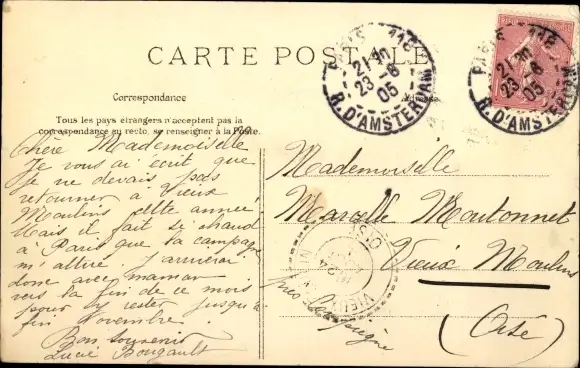 CARTE POSTALE
Correspondance
Adresse
Tous les pays étrangers n'acceptent pas la
correspondance au recto, se renseigner à la Poste.
PARIS 118
21 30
23-8
05
R. D'AMSTERDAM
PARIS 118
21 30
23-8
05
R. D'AMSTERDAM
Chère Mademoiselle
Je vous ai écrit que
je ne devais pas
retourner à Vieux
Moulins cette année,
Mais il fait si chaud
à Paris que la campagne
m'attire j'arriverai
donc avec maman
vers la fin de ce mois
pour y rester jusqu'à
fin Novembre.
Bon souvenir
Lucie Bougault
Mademoiselle
Marcelle Moutonnet
Vieux Moulins
près Compiègne
(Oise)